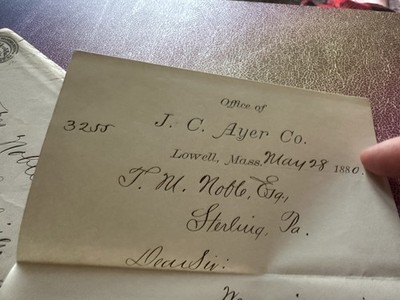 Office of
J. C. Ayer Co.
3255
Lowell, Mass. May 28 1880.
T. M. Noble, Esq,
Sterling, Pa.
Dear Sir: